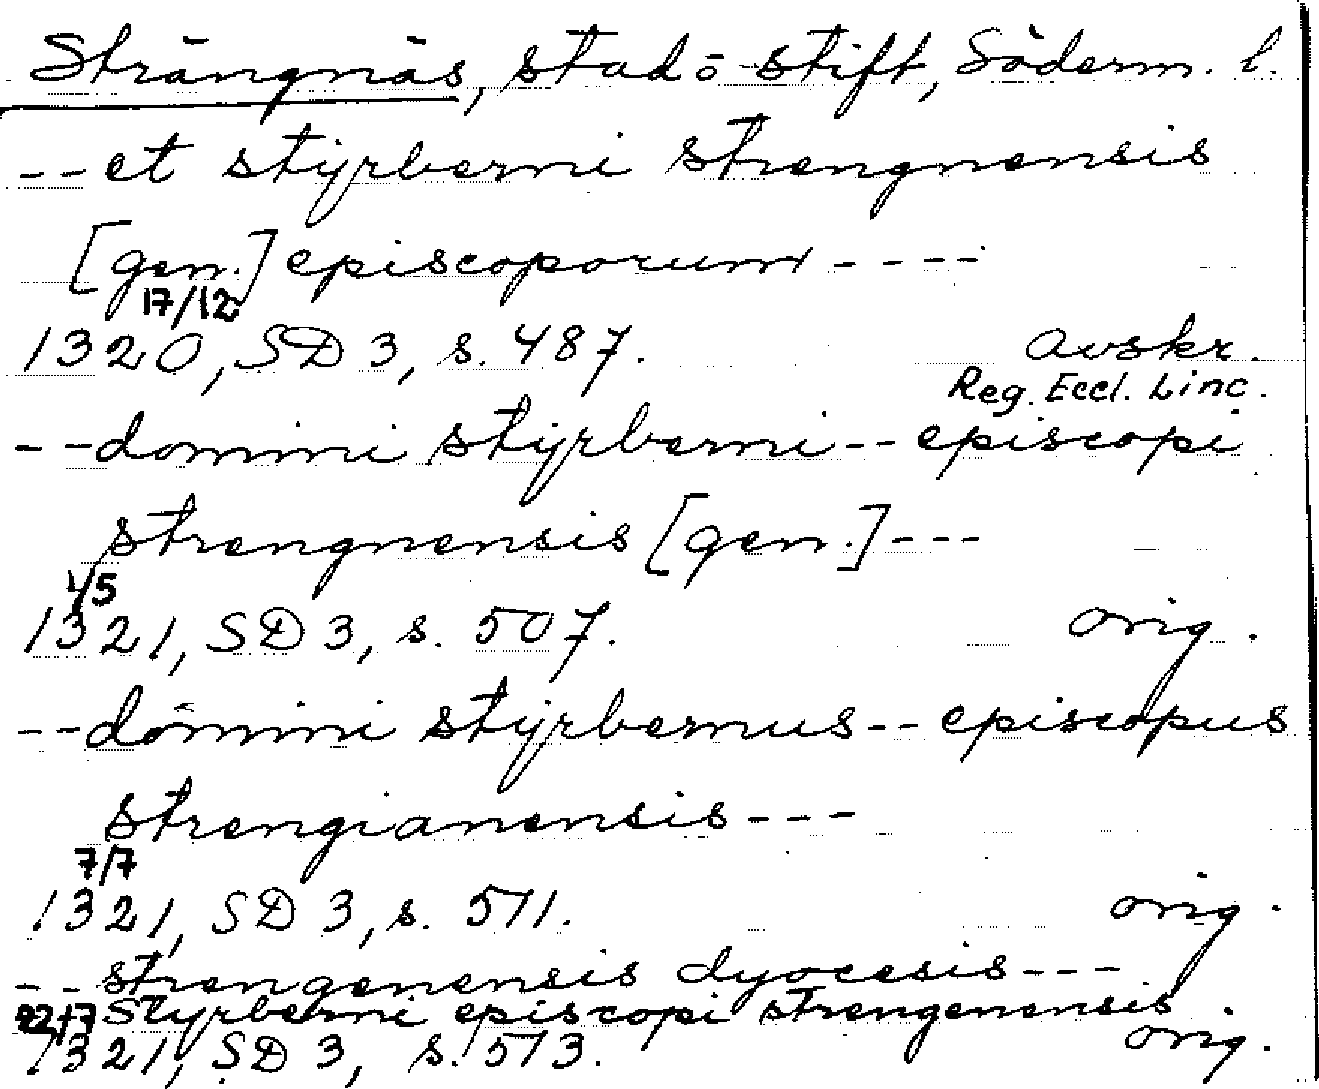 Strängnäs, stad o stift, Söderm. l.
-- et styrberni strengnensis
[gen.] episcoporum ----
17/12
1320, SD 3, s. 487. avskr.
Reg. Eccl. Linc.
-- domini styrberni -- episcopi
strengnensis [gen.] ---
1/5
1321, SD 3, s. 507. orig.
-- domini styrbernus -- episcopus
strengianensis ---
7/7
1321, SD 3, s. 511. orig.
-- strengenensis dyocesis ---
22/7 Styrberni episcopi strengenensis
1321, SD 3, s. 513. orig.